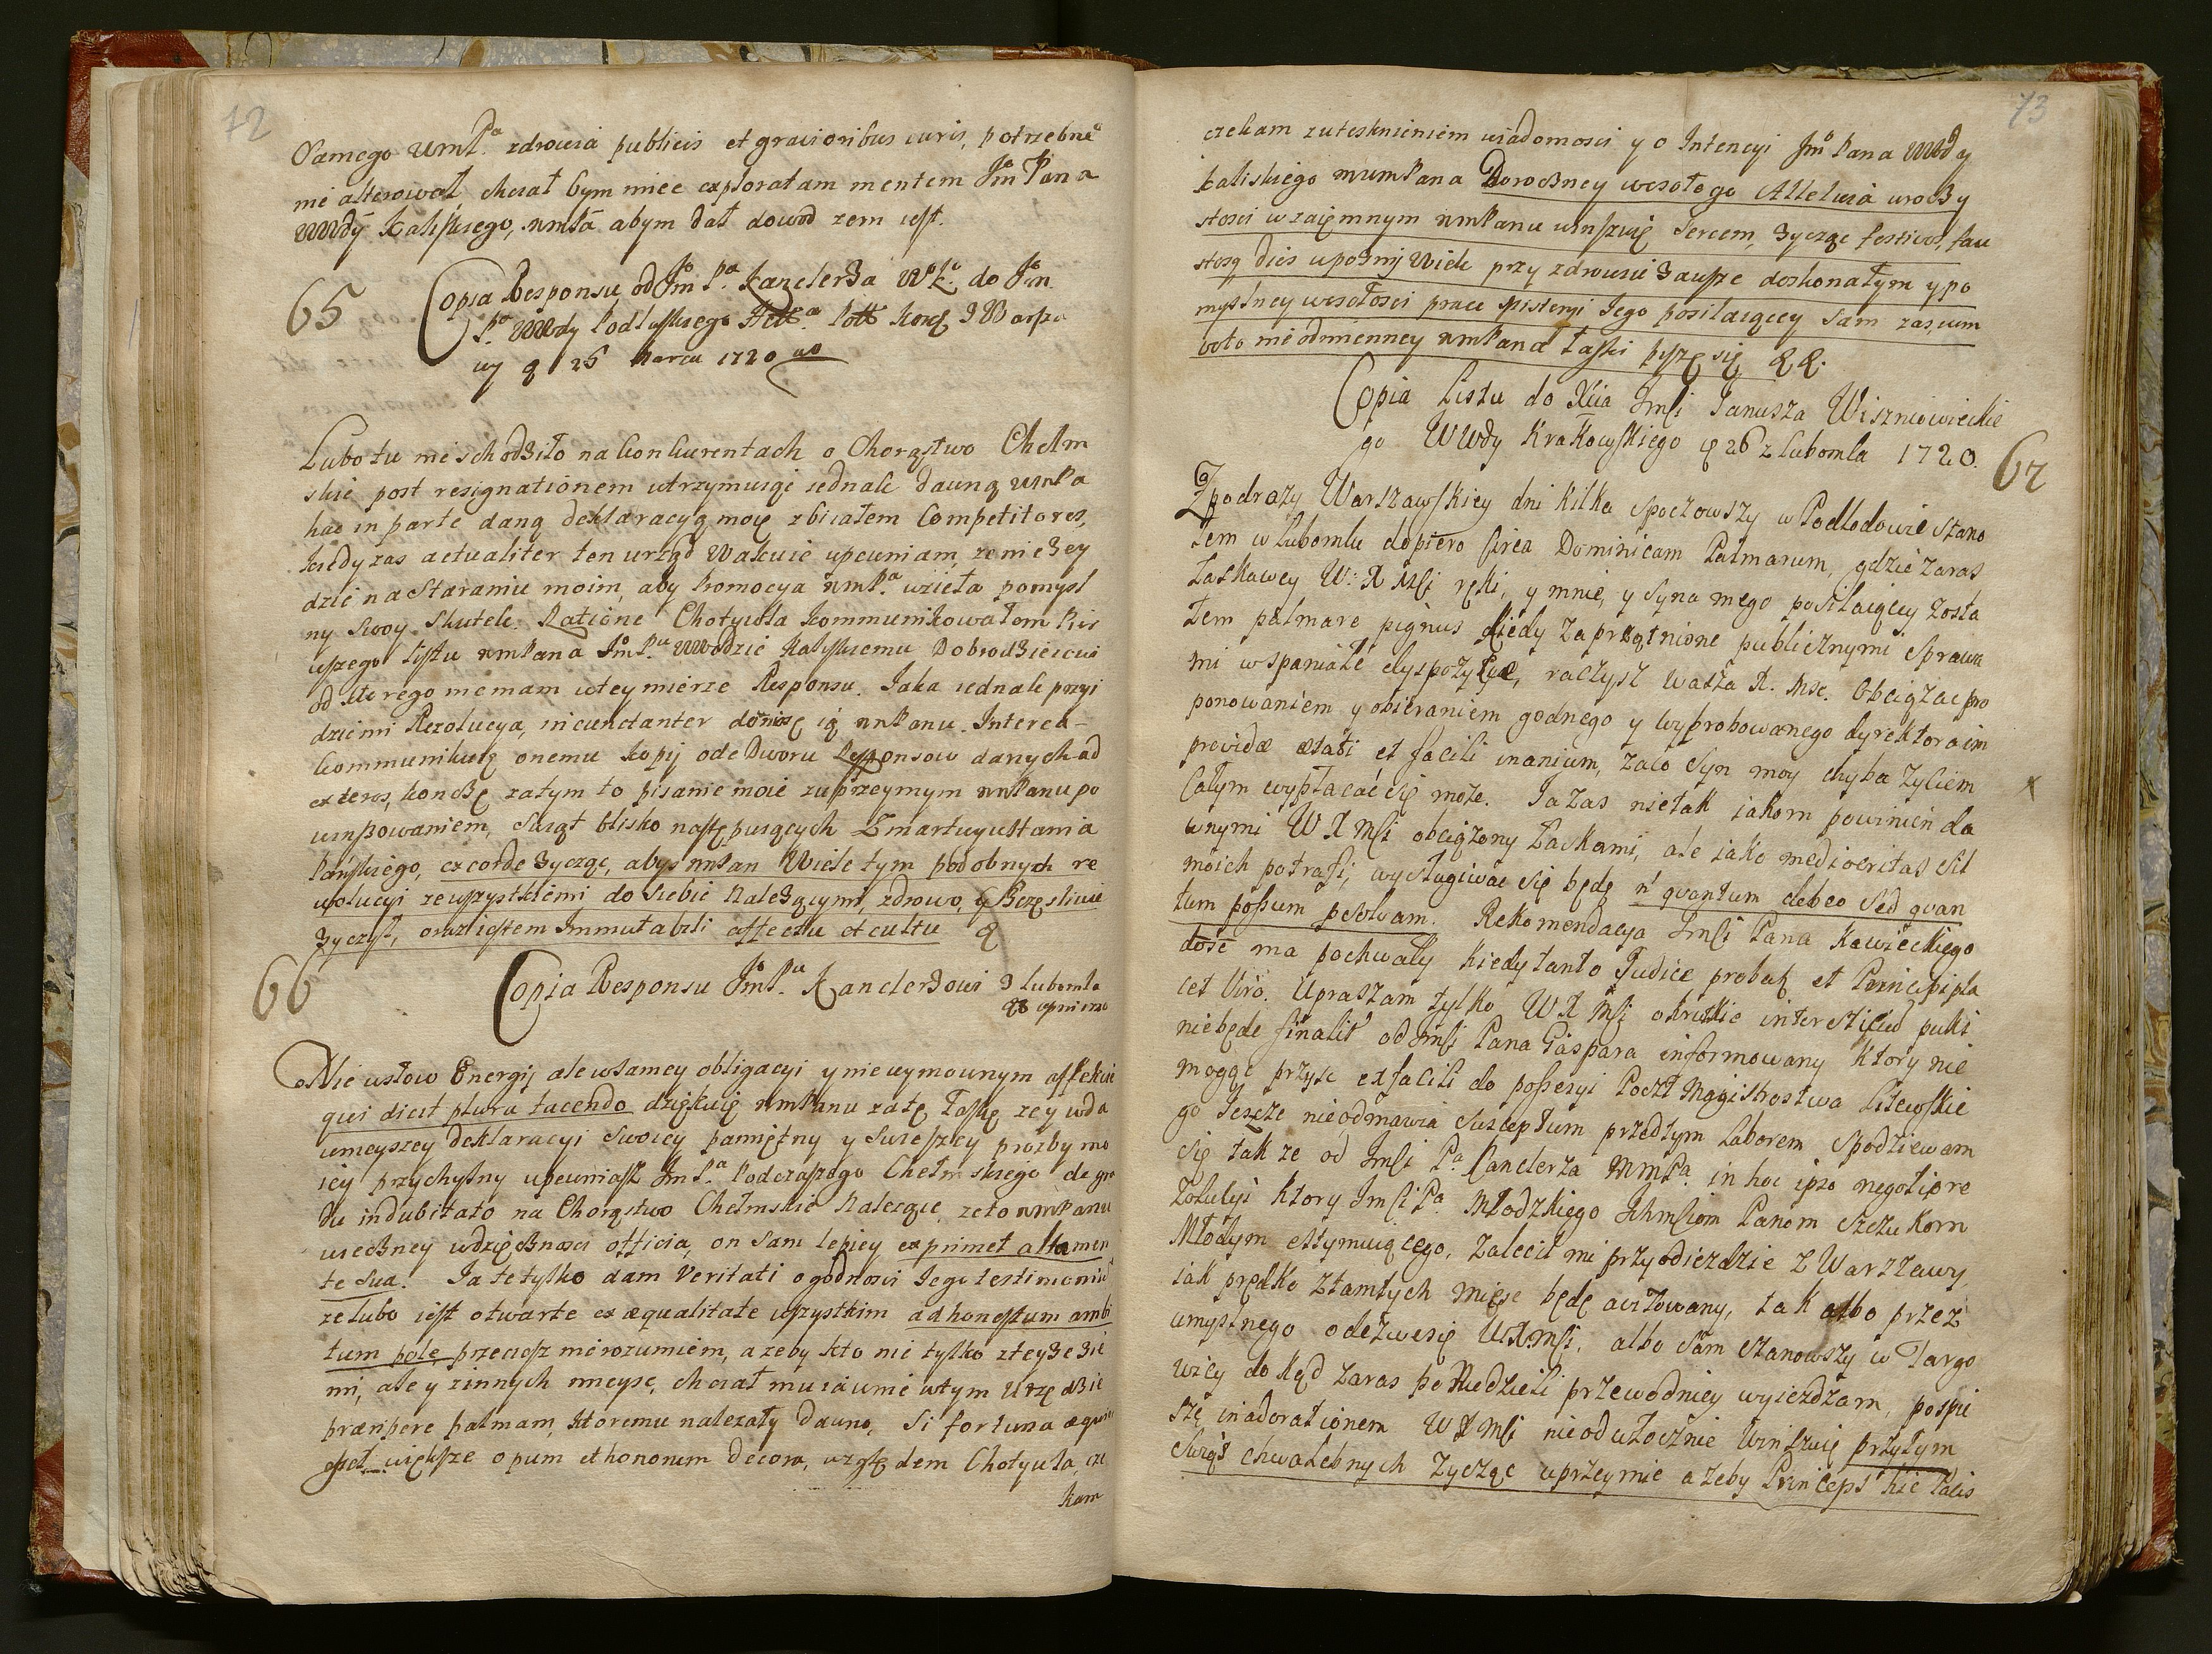 72
Samego WmP.ª zdrowia publicis et gravioribus curis, potrzebne
nie alterował, chciał bym miec exploratam mentem Jm Pana
WWdy Kaliskiego, WmPa abym dał dowod zem iest.
65
Copia Responsu od Jm P.ª Kanclerza WK.º do Jm
P.ª WWdy Podlaskiego Hetª Pott Kor
wy 26 Marca 1720
Lubo tu nie schodziło na konkurentach o Chorąstwo Chelm
skie post resignationem utrzymuiąc iednak dawną WmPa
hac in parte daną deklaracyą moię zbiiałem Competitores,
kiedy zas actualiter ten urząd Wakuie upewniam, ze nie zey
dzie na staraniu moim, aby Promocya WmP.ª wzieła pomysl
ny swoy skutek. Ratione Chotyuła kommunikowałem Pier
wszego listu WmPana Jm P.u WWodzie Kaliskiemu Dobrodzieiowi
od ktorego niemam w tey mierze Responsu. Jaka iednak przyi
dzie mi Rezolucya, incunctanter doniosę ią WmPanu. Interea
kommunikuię onemu kopij ode Dworu Responsow danych ad
exteros, konczę zatym to pisanie moie z uprzeymym WmPanu po
winszowaniem, swiąt blisko następuiących Zmartwychwstania
Panskiego, ex corde zycząc, abys WmPan Wiele tym podobnych re
wolucyi ze wszystkiemi do siebie nalezącymi, zdrowo, y szczęsliwie
zyczył, oraz iestem Immutabili affectu et cultu
66
Copia Responsu Jm P.u Kanclerzowi z Lubomla
Nie w słow Energij ale w samey obligacyi y niewymownym affekcie
qui dicit plura tacendo dziękuię WmPanu za tę Łaskę ze y wda
wnieyszey deklaracyi swoiey pamiętny y swieszey prozby mo
iey przychylny upewniasz Jm P.ª Podczaszego Chełmskiego de gra
du indubitato na Chorąstwo Chełmskie Nalezące, ze to WmPanu
wieczney wdzięcznosci officia, on sam lepiey exprimet alta men
te sua. Ja te tylko dam Veritati o godnosci Jego testimonium
ze lubo iest otwarte ex æqualitate wszystkim ad honestum ambi
tum pole, przeciesz nierozumiem, azeby kto nie tylko z tey ze zie
mi, ale y z innych mieysc, chciał mu iawnie w tym Urzędzie
præripere palmam, ktoremu nalezały dawno, si fortuna æqua
esset większe opum et honorum decora, względem Chotyuła, cze
kam
73
czekam z uteschnieniem wiadomosci y o Intencyi Jm Pana WWdy
Kaliskiego mumPana Doroczney wesołego Alleluia uroczy
stosci wzaięmnym WmPanu winszuię sercem, zycząc festivos, fau
stosq dies upoznij Wiele przy zdrowiu zawsze doskonałym y po
myslney wesołosci prace Ministeryi Jego posilaiącey sam zas cum
voto nieodmienney WmPana łaski piszę się
Copia Listu do Xcia Jmści Janusza Wiszniowieckie
go WWdy Krakowskiego 26 z Lubomla 1720.
67
Z podrozy Warszawskiey dni kilka spoczowszy w Podlodowie Stano
łem w Lubomlu dopiero circa Dominicam Palmarum, gdzie zaras
Łaskawey W. X Mści ręki, y mnie, y syna mego posilaiącey zosta
łem palmare pignus kiedy zaprzątnione publicznymi sprawa
mi wspaniałe dyspozycye, raczysz Wasza X. Msc. Obciązac pro
ponowaniem y obieraniem godnego y wyprobowanego dyrektora im
providæ ætati et facili inanium, za co syn moy chyba zyciem
całym wypłacać się moze. Ja zas nie tak iakom powinien da
wnymi W X Mści obciązony Łaskami, ale iako mediocritas sił
moich potrafi, wysługiwac się będę ń quantum debeo sed quan
tum possum psolvam. Rekomendacya Jmści Pana Kawieckiego
dosć ma pochwały kiedy tanto Judice probat, et Principi pla
cet Viro. Upraszam tylko W X Mść o krotkie interstitiu puki
niebęde finalit od Jmści Pana Gaspara informowany ktory nie
mogąc przysc ex facili do possessyi Poczt Magistrostwa Litewskie
go Jeszcze nieodmawia susceptum przedtym laborem spodziewam
się tak ze od Jmści P.ª Canclerza MmPª. in hoc ipso negotio re
zolucyi ktory Jmści P.ª Młodzkiego Ichmściom Panom Szczukom
Młodym assymuiącego, zalecił mi przy odiezdzie z Warszawy
iak prędko z tamtych mieysc będę awizowany, tak albo przez
umyslnego odezwę się W X Mści, albo sam stanowszy w Targo
wicy do kąd zaras po Niedzieli przewodniey wyiezdzam, pospie
szę in adorationem W X Mści nieodwłocznie Winszuię przytym
swiąt chwalebnych zycząc uprzeymie azeby Princeps hic Pacis